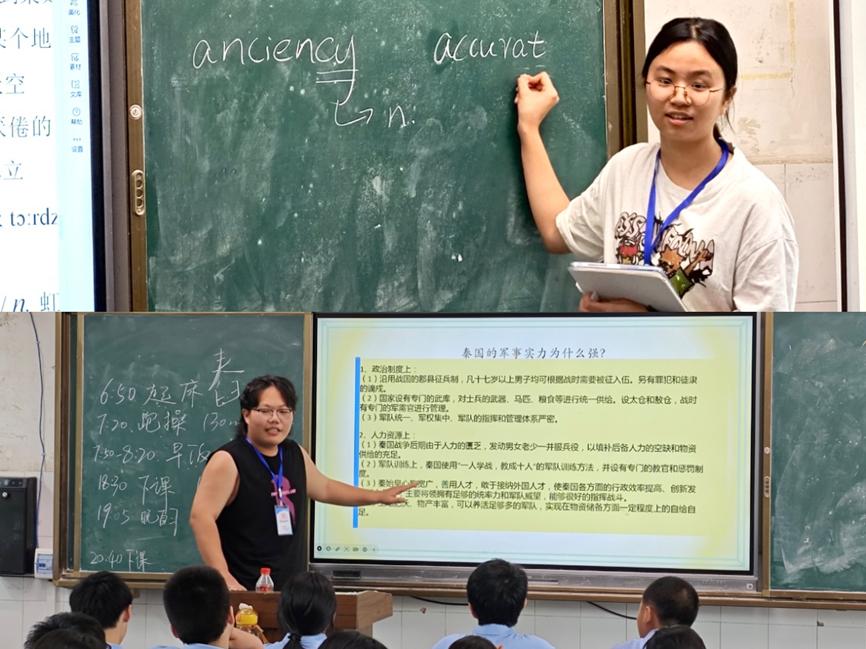 某个地
空
厌倦的
立
tɔːrdz
n. 虹
美化
主题
素材
文库
帮助
设置
anciency
accurat
n.
6:50 起床
7:20 跑操
7:50-8:20 早饭
18:30 下课
20:40 下课
秦国的军事实力为什么强?
1、政治制度上:
(1)沿用战国的郡县征兵制,凡十七岁以上男子均可根据战时需要被征入伍。另有罪犯和徒隶
的谪戍。
(2)国家设有专门的武库,对士兵的武器、马匹、粮食等进行统一供给。设太仓和敖仓,战时
有专门的军需官进行管理。
(3)军队统一、军权集中、军队的指挥和管理体系严密。
2、人力资源上:
(1)秦国战争后期由于人力的匮乏,发动男女老少一并服兵役,以填补后备人力的空缺和物资
供给的充足。
(2)军队训练上,秦国使用“一人学战,教成十人”的军队训练方法,并设有专门的教官和惩罚制
度。
(3)秦始皇心胸宽广,善用人才,敢于接纳外国人才,使秦国各方面的行政效率提高、创新发
主要将领拥有足够的统率力和军队威望,能够很好的指挥战斗。
物产丰富,可以养活足够多的军队,实现在物资储备方面一定程度上的自给自
足。